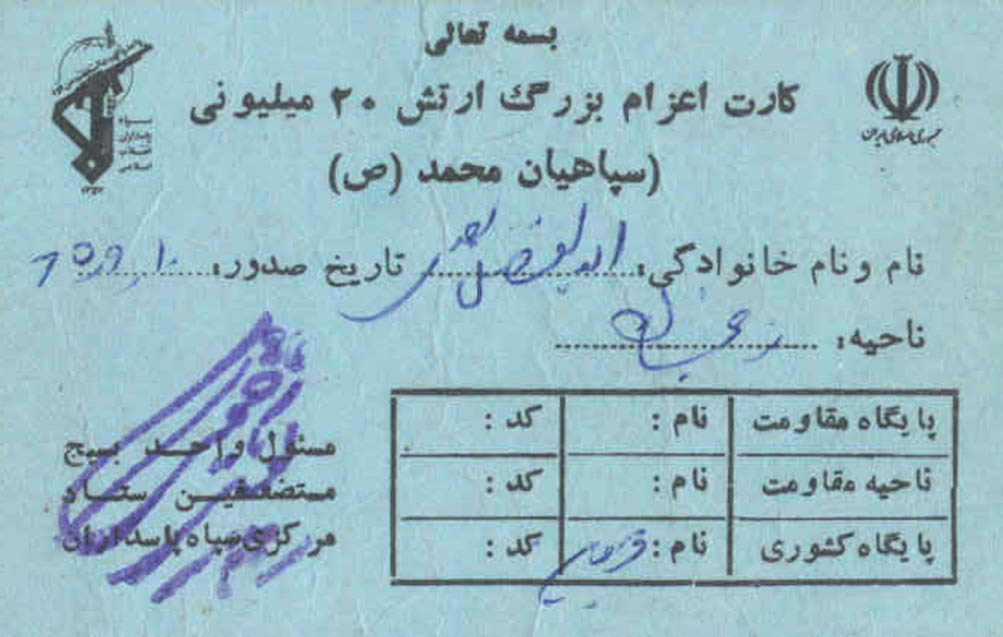 بسمه تعالی
کارت اعزام بزرگ ارتش ۲۰ میلیونی
(سپاهیان محمد (ص)
جمهوری اسلامی ایران
نام و نام خانوادگی: ابوالفضل تاریخ صدور:
ناحیه:
پایگاه مقاومت نام: کد:
ناحیه مقاومت نام: کد:
پایگاه کشوری نام: کد:
مسئول واحد بسیج
مستضعفین ستاد
مرکزی سپاه پاسداران